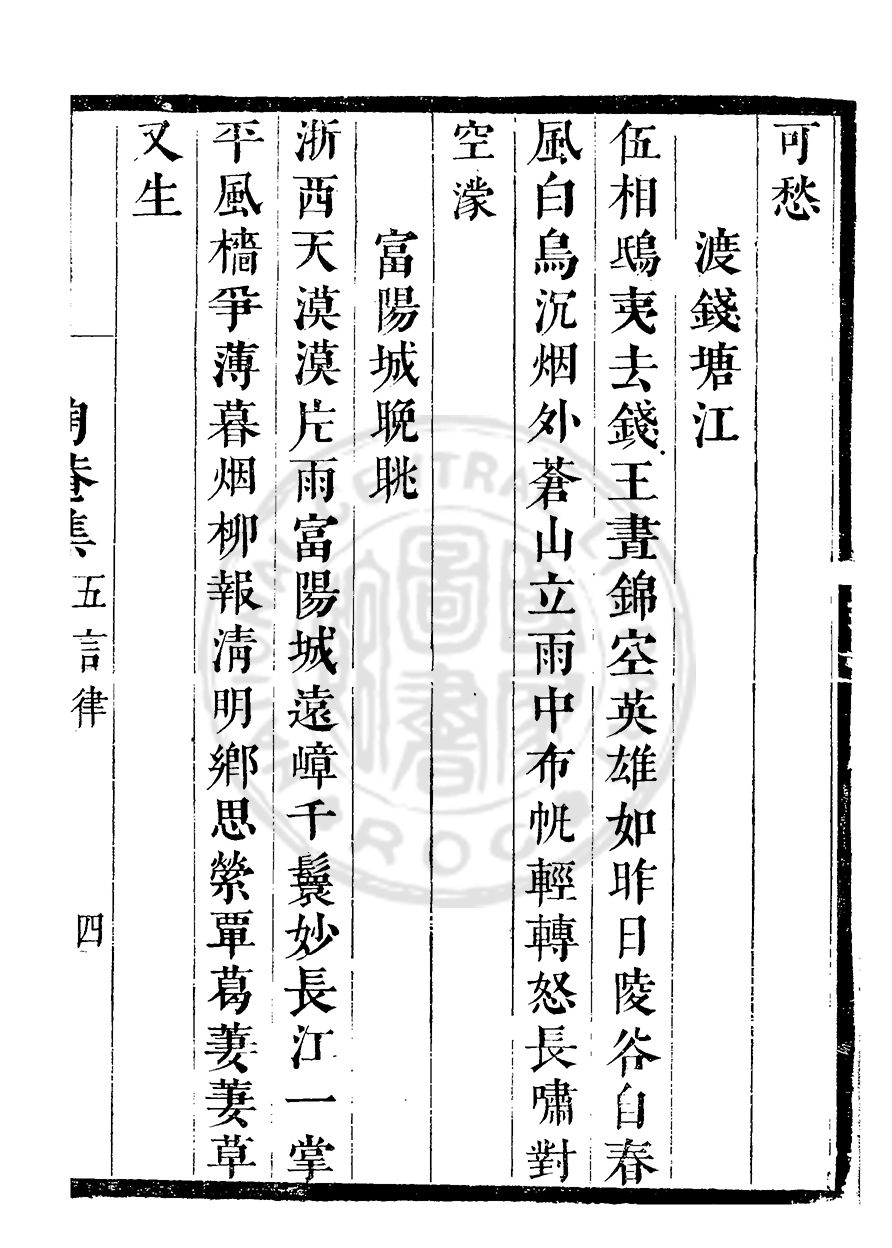 可愁
渡錢塘江
伍相鴟夷去錢王晝錦空英雄如昨日陵谷自春
風白鳥沉烟外蒼山立雨中布帆輕轉怒長嘯對
空濛
富陽城晚眺
浙西天漠漠片雨富陽城遠嶂千鬟妙長江一掌
平風檣爭薄暮烟柳報清明鄉思縈覃葛萋萋草
又生
陶菴集
五言律
四